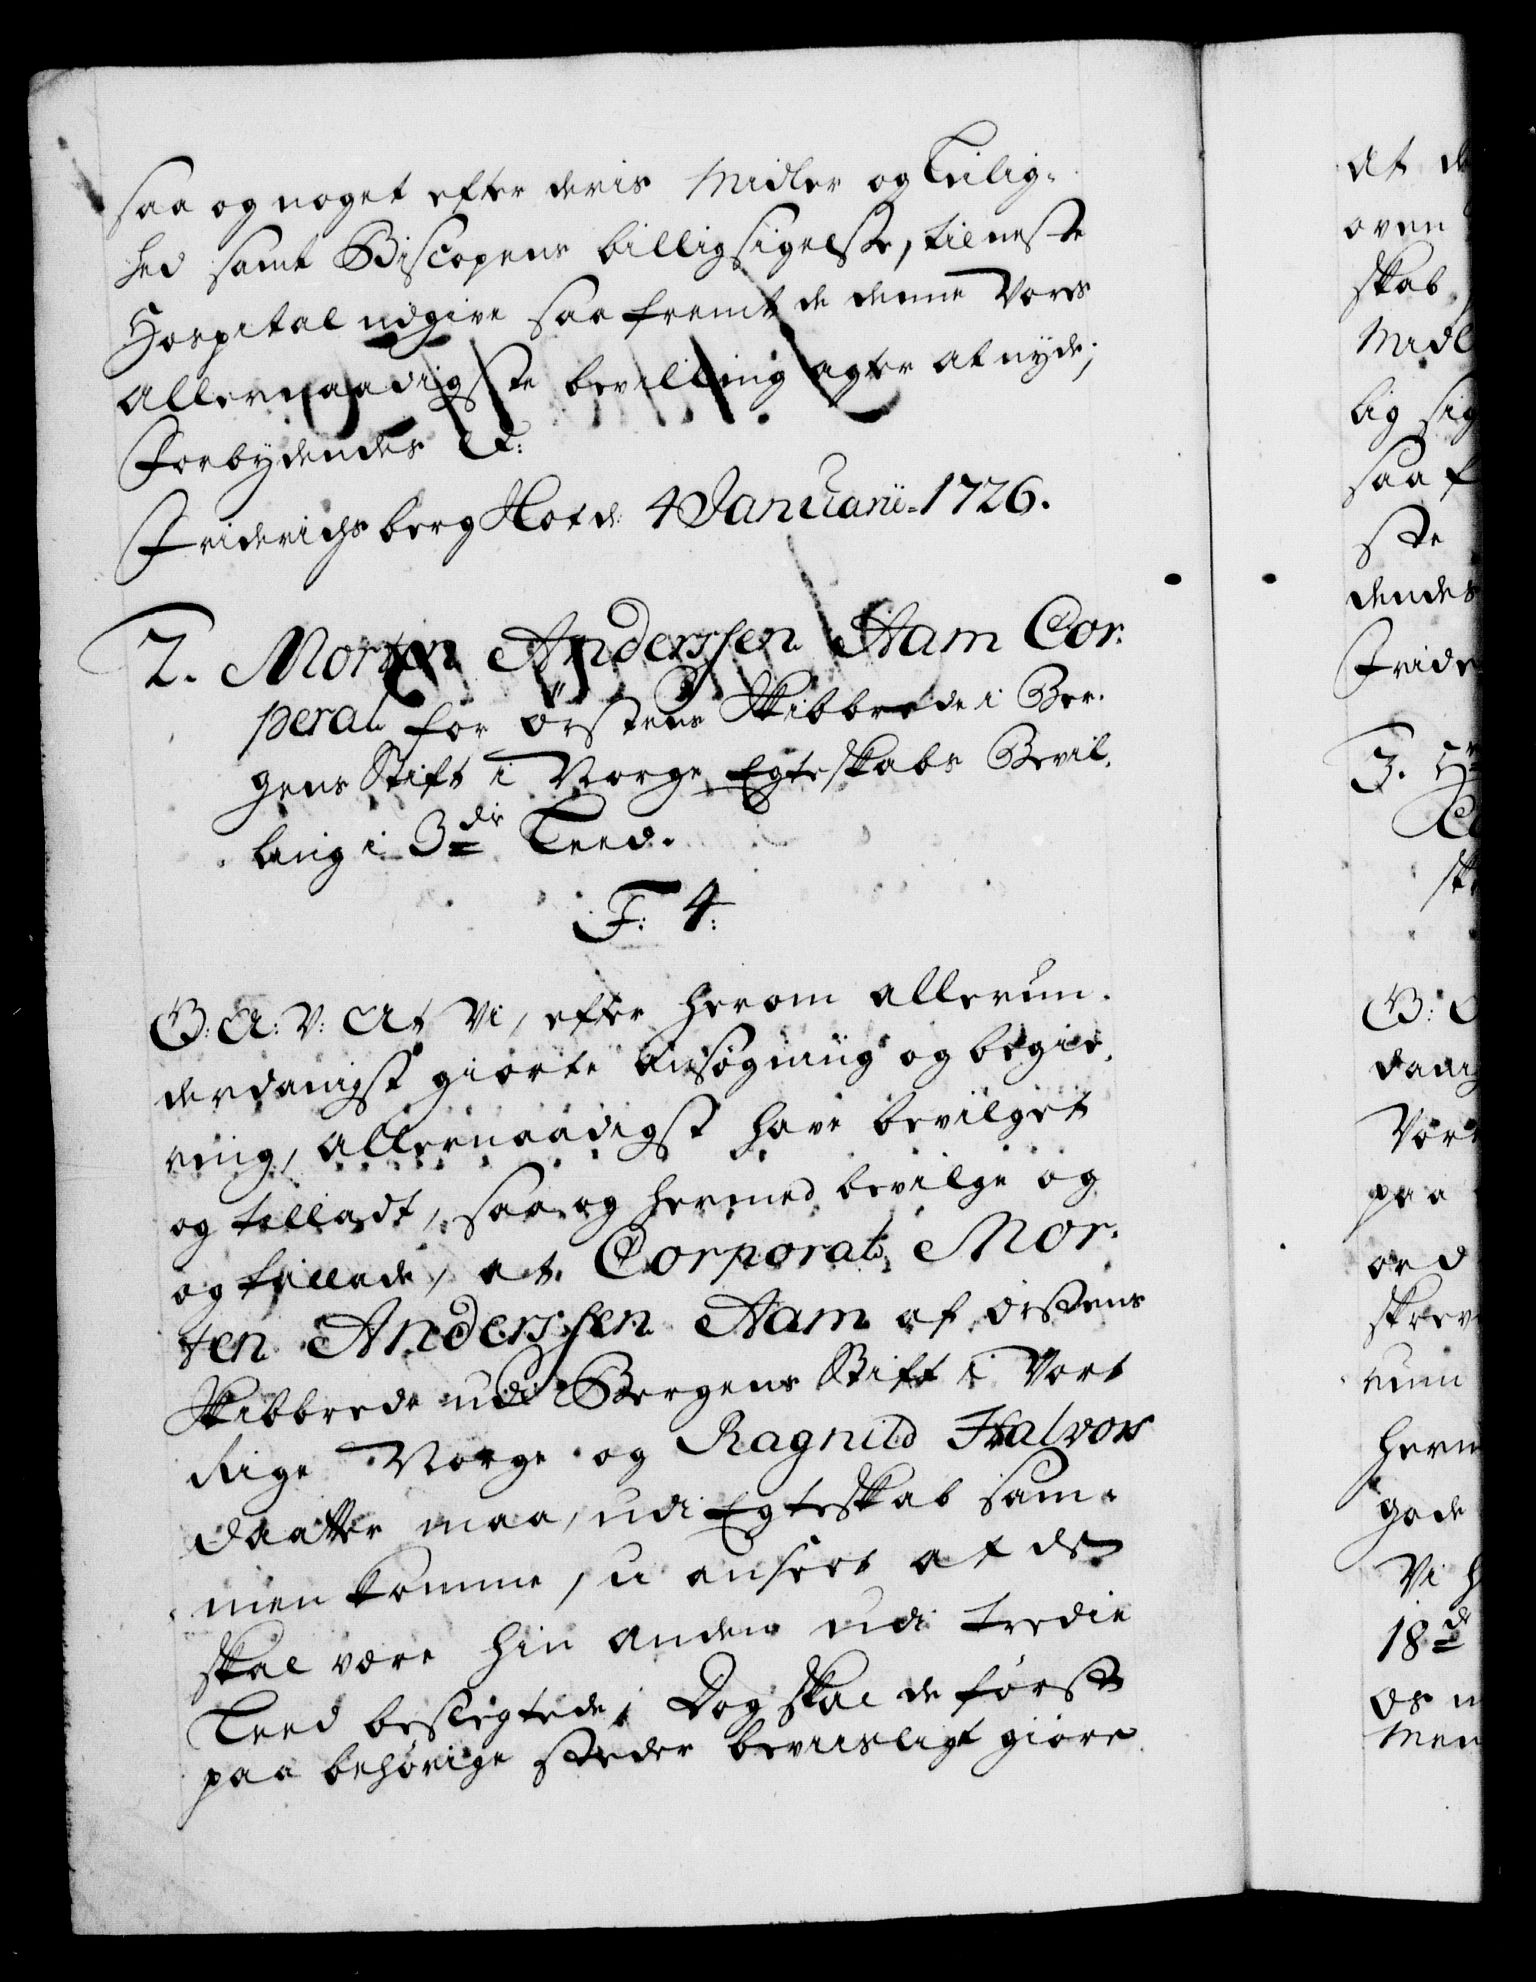 saa og noget efter deris Midler og Leilig-
hed samt Biscopens billigsigelse, til neste
Hospital udgive saa fremt de denne Vores
allernaadigste bevilling agter at nyde;
Forbydendes etc:
Friderichsberg Slot d: 4 Januarii 1726.
2. Morten Anderssen Aam Cor-
poral for Örstens Skibbrede i Ber-
gens Stift i Norge Egteskabs Bevil-
ling i 3die Leed.
F: 4:
G: A: V: At Vi, efter herom allerun-
derdanigst giorte Ansögning og begie-
ring, allernaadigst have bevilget
og tilladt, saa og hermed bevilge og
og tillade, at Corporal Mor-
ten Anderssen Aam af Örstens
Skibbrede udi Bergens Stift i Vort
Rige Norge og Ragnild Halvors
daatter maa, udi Egteskab sam-
men komme, u anseet at de
skal være hin anden udi tredie
Leed beslegtede; Dog skal de först
paa behörige steder beviisligt giöre
at d
oven
skab
Midl
lig sig
saa f
ste
dendes
Fride
3.
G:
danig
Vor
paa
ord
skrev
herm
gode
Vi h
18d
os
Men